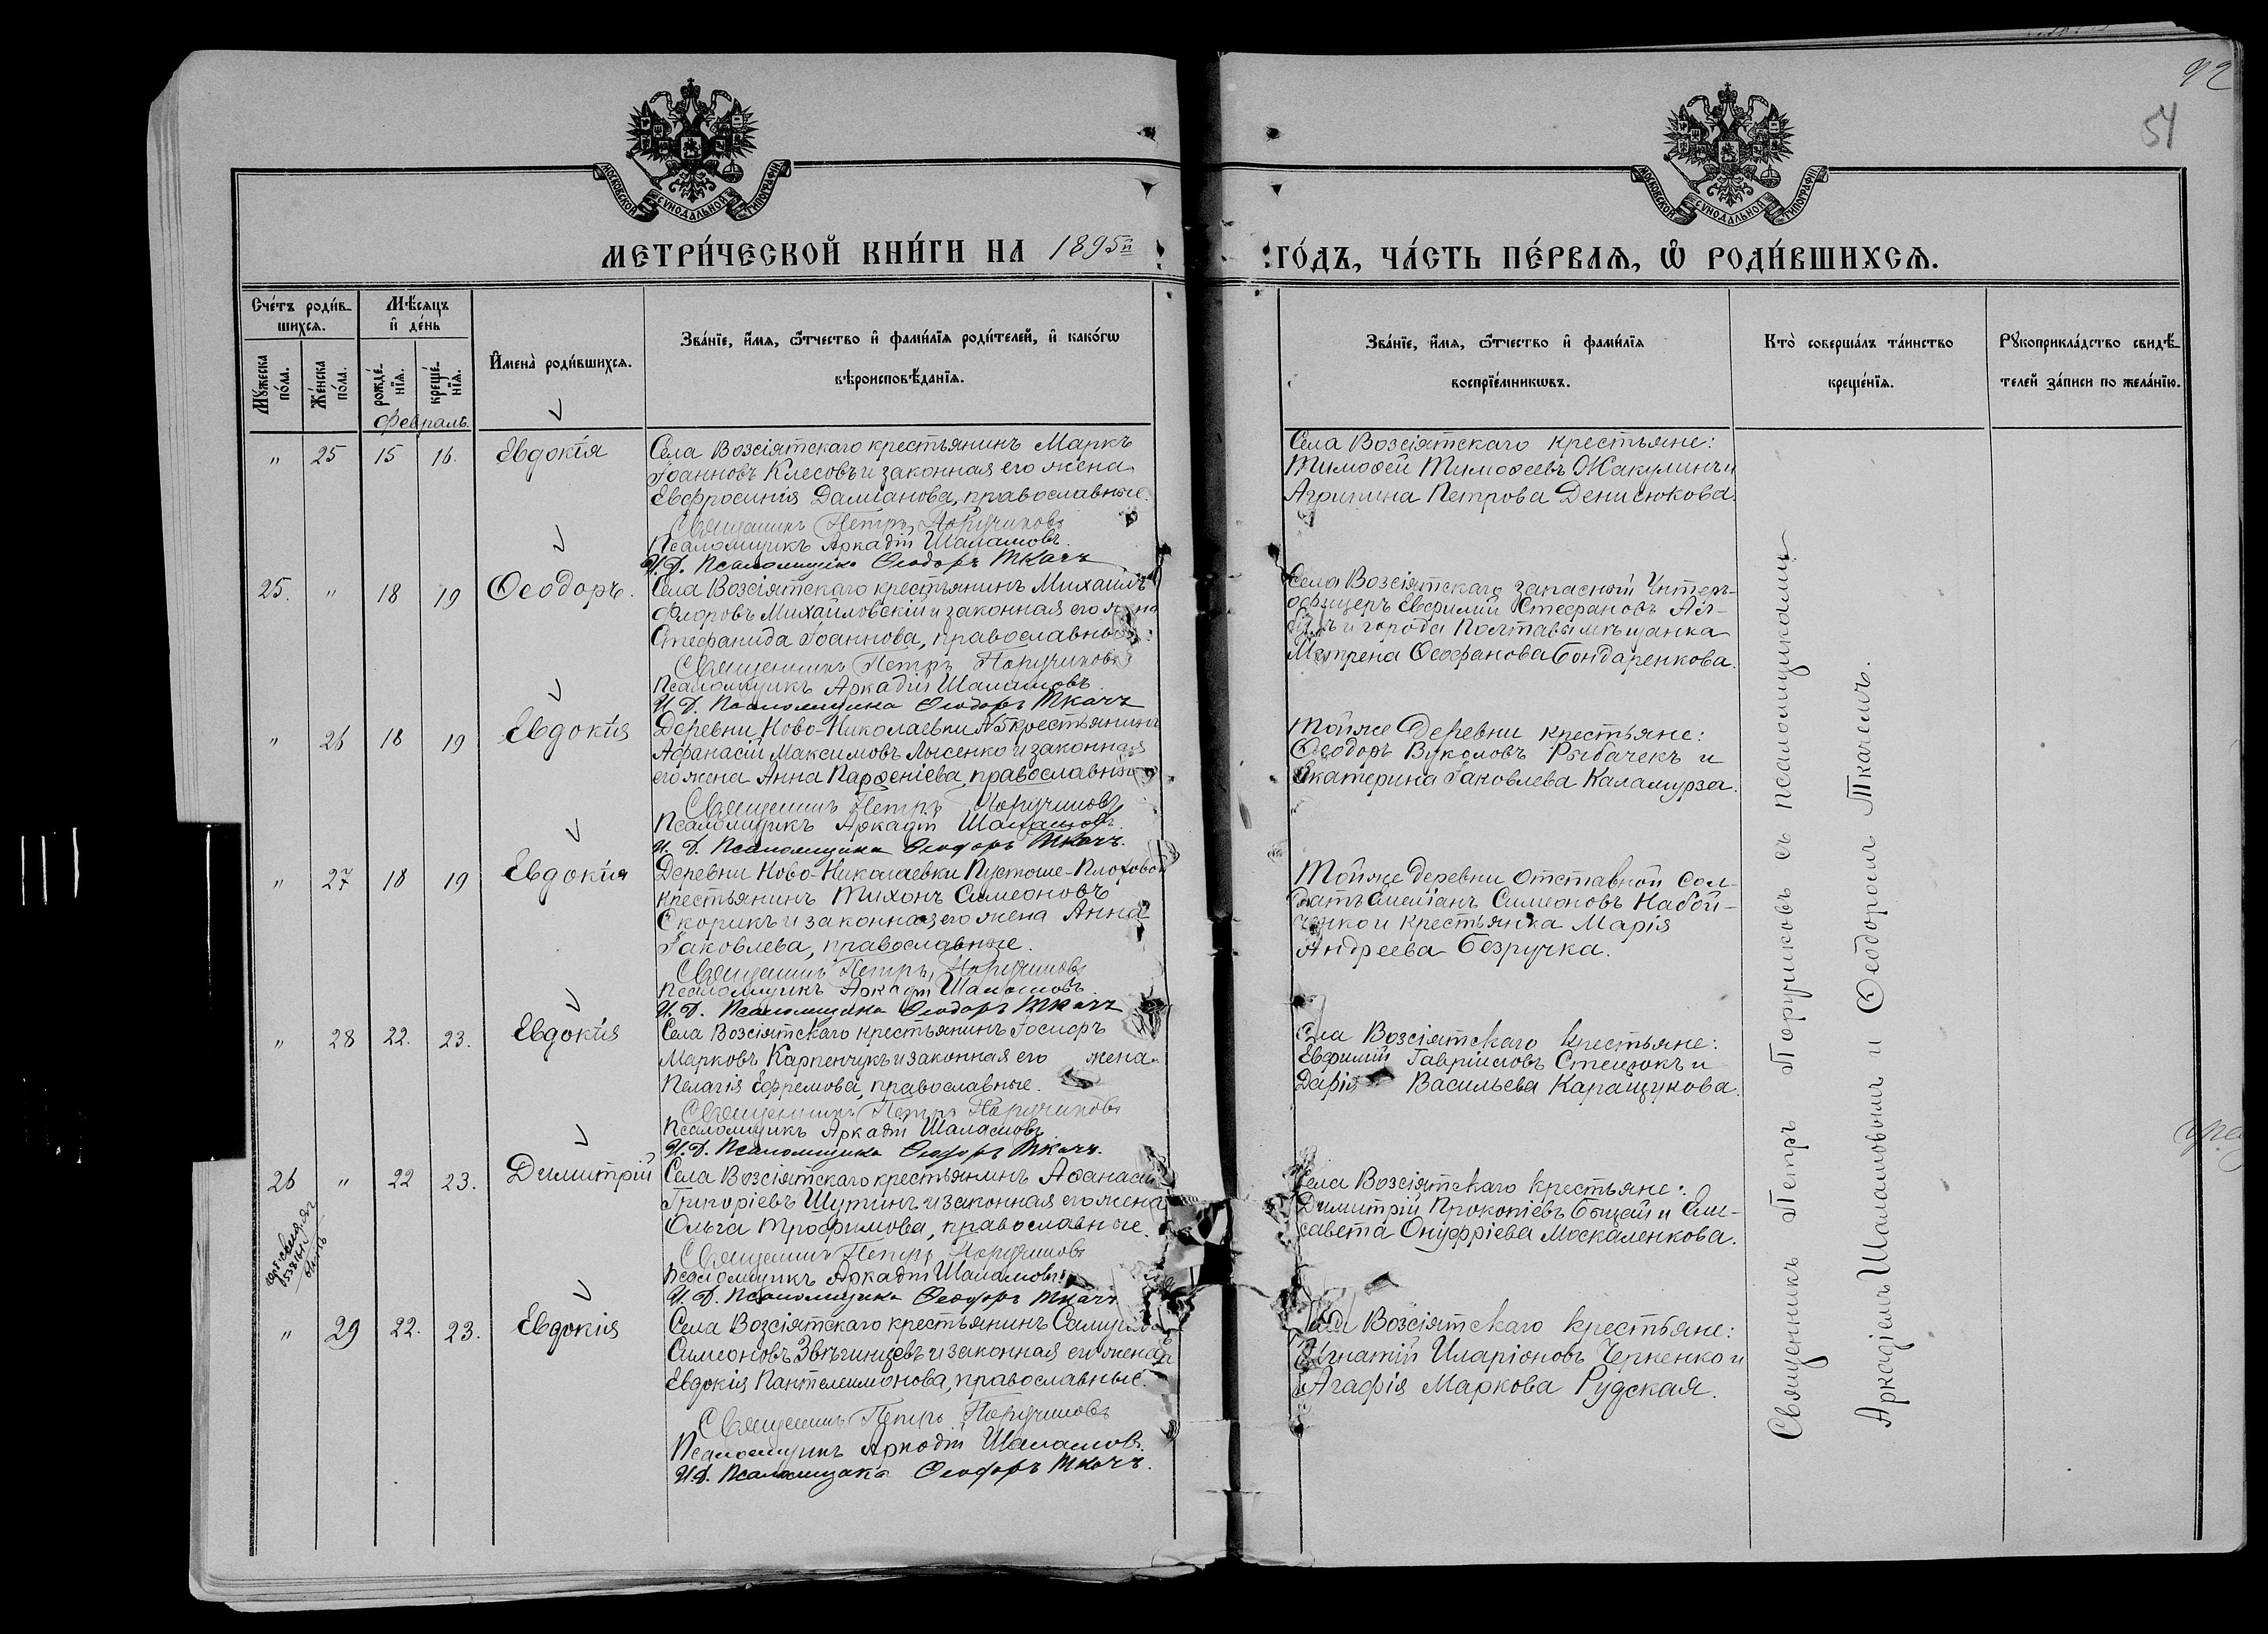 92
54
МОСКОВСКОЙ СѴНОДАЛЬНОЙ ТИПОГРАФІИ
МОСКОВСКОЙ СѴНОДАЛЬНОЙ ТИПОГРАФІИ
МЕТРИ́ЧЕСКОЙ КНИ́ГИ НА 1895й
ГО́ДЪ, ЧА́СТЬ ПЕ́РВАЯ, Ѡ РОДИ́ВШИХСЯ.
Сче́тъ роди́в-
шихся.
Мꙋ́жеска по́ла.
Же́нска по́ла.
Мѣ́сяцъ
и де́нь
рожде́-
нїя.
креще́-
нїя.
Имена̀ роди́вшихся.
Зва́нїе, имя, ѻтчество и фами́лїя роди́телей, и како́гѡ
вѣроисповѣ́данїя.
Зва́нїе, имя, ѻтчество и фами́лїя
воспрїе́мникѡвъ.
Кто̀ соверша́лъ та́инство
креще́нїя.
Рꙋкоприкла́дство свидѣ́-
телей за́писи по жела́нїю.
Февраль.
" 25 15 16. Евдокія
Села Возсіятскаго крестьянинъ Маркъ
Іоанновъ Клесовъ и законная его жена
Евфросинія Даміанова, православные.
Священникъ Петръ Поручиковъ
Псаломщикъ Аркадій Шаламовъ.
И. Д. Псаломщика Ѳеодоръ Ткачъ
Села Возсіятскаго крестьяне:
Тимоѳей Тимоѳеевъ Жакулинъ и
Агрипина Петрова Денисюкова.
25. " 18 19 Ѳеодоръ.
Села Возсіятскаго крестьянинъ Михаилъ
Флоровъ Михайловскій и законная его жена
Стефанида Іоаннова, православные.
Священникъ Петръ Поручиковъ
Псаломщикъ Аркадій Шаламовъ
И. Д. Псаломщика Ѳеодоръ Ткачъ
Села Возсіятскаго запасной Унтеръ-
офицеръ Евфимій Стефановъ
и города Полтавы мѣщанка
Матрена Ѳеофанова Бондаренкова.
" 26 18 19 Евдокія
Деревни Ново-Николаевки №5 крестьянинъ
Афанасій Максимовъ Лысенко и законная
его жена Анна Парѳеніева, православные
Священникъ Петръ Поручиковъ
Псаломщикъ Аркадій Шаламовъ.
И. Д. Псаломщика Ѳеодоръ Ткачъ.
Той же деревни крестьяне:
Ѳеодоръ Вуколовъ Рыбачекъ и
Екатерина Іаковлева Каламурза.
" 27 18 19 Евдокія
Деревни Ново-Николаевки Пустоше-Плоховой
крестьянинъ Тихонъ Симеоновъ
Скорикъ и законная его жена Анна
Іаковлева, православные.
Священникъ Петръ Поручиковъ
Псаломщикъ Аркадій Шаламовъ.
И. Д. Псаломщика Ѳеодоръ Ткачъ
Той же деревни отставной сол-
датъ Симеоновъ Набой-
ченко и крестьянка Марія
Андреева Безручка.
" 28 22. 23. Евдокія
Села Возсіятскаго крестьянинъ Іосифъ
Марковъ Карпенчукъ и законная его жена
Пелагія Ефремова, православные.
Священникъ Петръ Поручиковъ
Псаломщикъ Аркадій Шаламовъ
И. Д. Псаломщика Ѳеодоръ Ткачъ.
Села Возсіятскаго крестьяне:
Евфимій Гавріиловъ Стецюкъ и
Дарія Васильева Каращукова.
26 " 22 23. Димитрій
Села Возсіятскаго крестьянинъ Аѳанасій
Григоріевъ Шутинъ и законная его жена
Ольга Трофимова, православные.
Священникъ Петръ Поручиковъ
Псаломщикъ Аркадій Шаламовъ
И. Д. Псаломщика Ѳеодоръ Ткачъ
Села Возсіятскаго крестьяне:
Димитрій Прокопіевъ Бѣцай и Ели-
савета Онуфріева Москаленкова.
" 29 22. 23. Евдокія
Села Возсіятскаго крестьянинъ
Симеоновъ Звѣгинцевъ и законная его жена
Евдокія Пантелеимонова, православные.
Священникъ Петръ Поручиковъ
Псаломщикъ Аркадій Шаламовъ.
И. Д. Псаломщика Ѳеодоръ Ткачъ.
Села Возсіятскаго крестьяне:
Игнатій Иларіоновъ Черненко и
Агафія Маркова Рудская.
Священникъ Петръ Поручиковъ съ псаломщиками
Аркадіемъ Шаламовымъ и Ѳеодоромъ Ткачемъ.